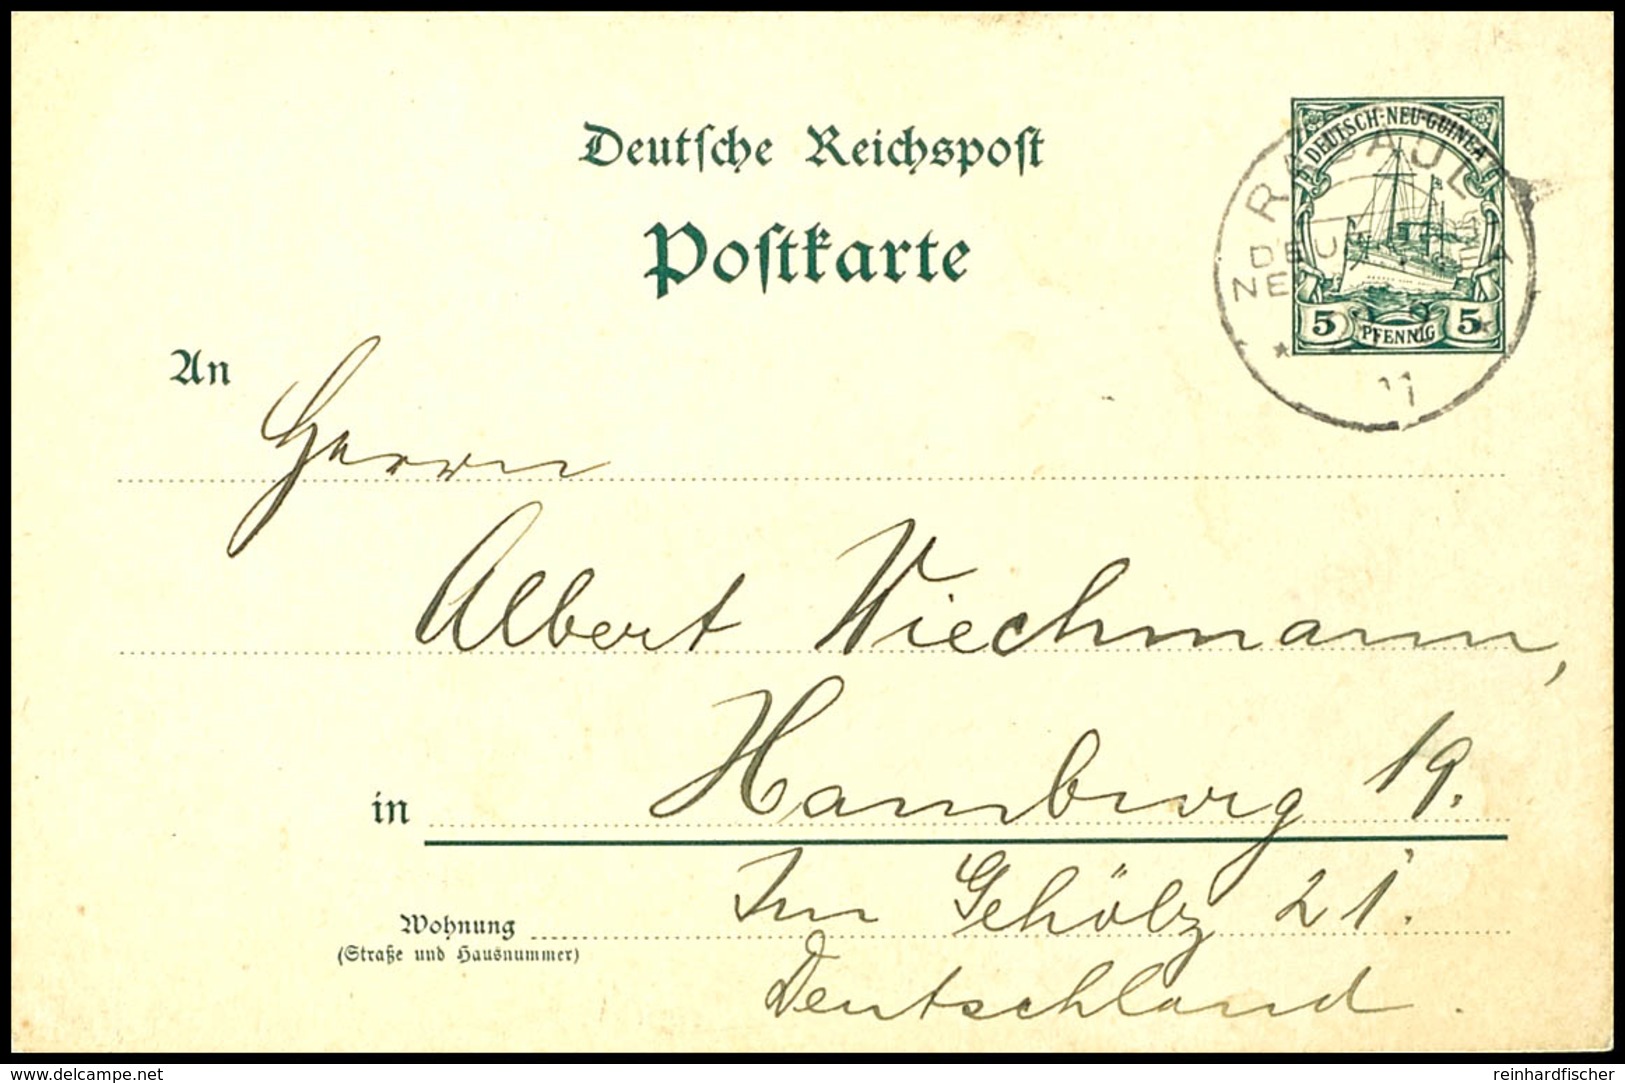 Deutsche Reichspost
Postkarte
DEUTSCH-NEU-GUINEA
5 PFENNIG 5
RABAUL
An
Herrn
Albert Wiechmann,
in Hamburg 19.
Im Gehölz 21.
Wohnung
(Straße und Hausnummer)
Deutschland.
www.delcampe.net
reinhardfischer